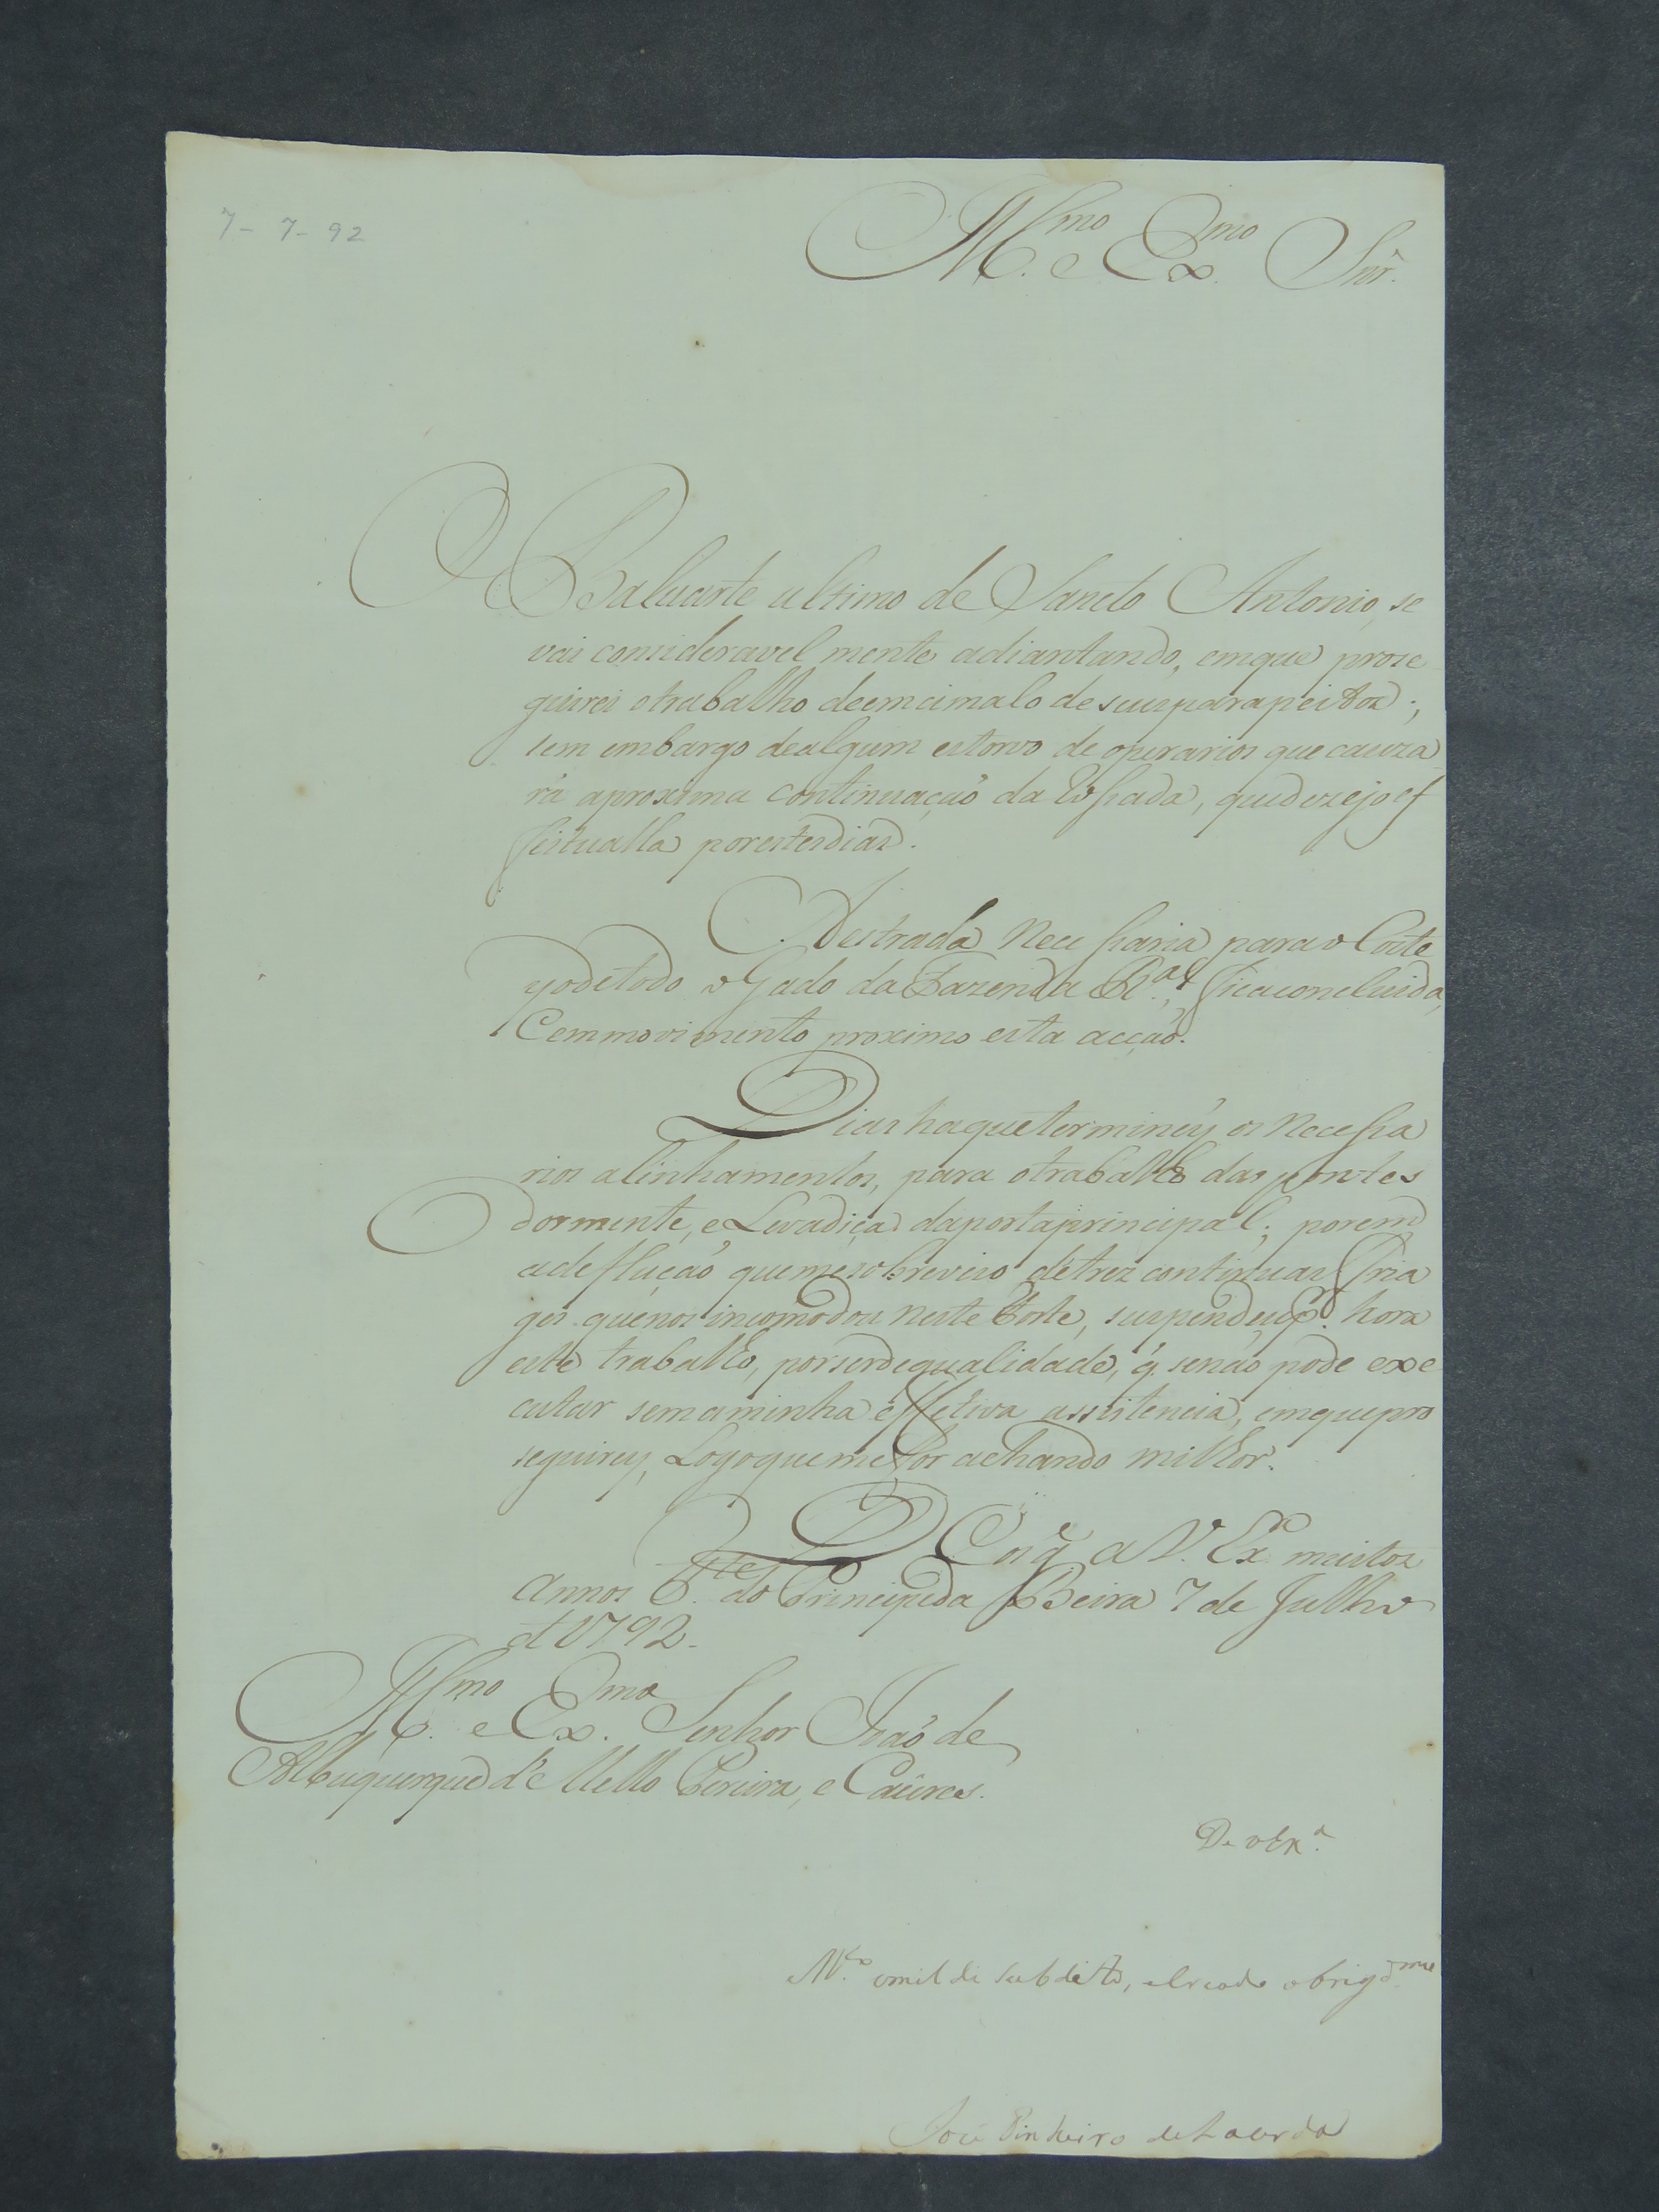 7-7-92
Ill.mo e Ex.mo Snr.
O Baluarte ultimo de Sancto Antonio, se
vai consideravel mente adiantando, emque prose
guirei otrabalho deemcimalo deseusparapeitos;
sem embargo dealgum estorvo de operarios que cauza
rá aproxima continuação da Esstada, quedezejo ef
feitualla porestesdias.
A estrada Necessaria para o Corte
yodetodo o Gado da Fazenda R.al, fica concluida,
Cemmovimento proximo esta acção.
Dias haqueterminéy os Necessa
rios alinhamentos, para otrabalho das pontes
dormente, e Levadiça daportaprincipal; porem
adeflução quemesobreveio detrez continuas fria
gés quenos incomodou neste Forte, suspendeo p.r hora
este trabalho, porserdequalidade, q̃ senão pode exe
cutar semaminha effetiva assistencia, emquepro
seguirey, Logoqueme for achando milhor.
D.s G.e a V. Ex.a muitos
annos F.te do Principe da Beira 7 de Julho
d 1792.
Ill.mo e Ex.mo Senhor João de
Albuquerque de Mello Pereira, e Cáceres.
De vEx.a
M.to omilde subdito, e creado obrigd.mo
José Pinheiro de Lacerda